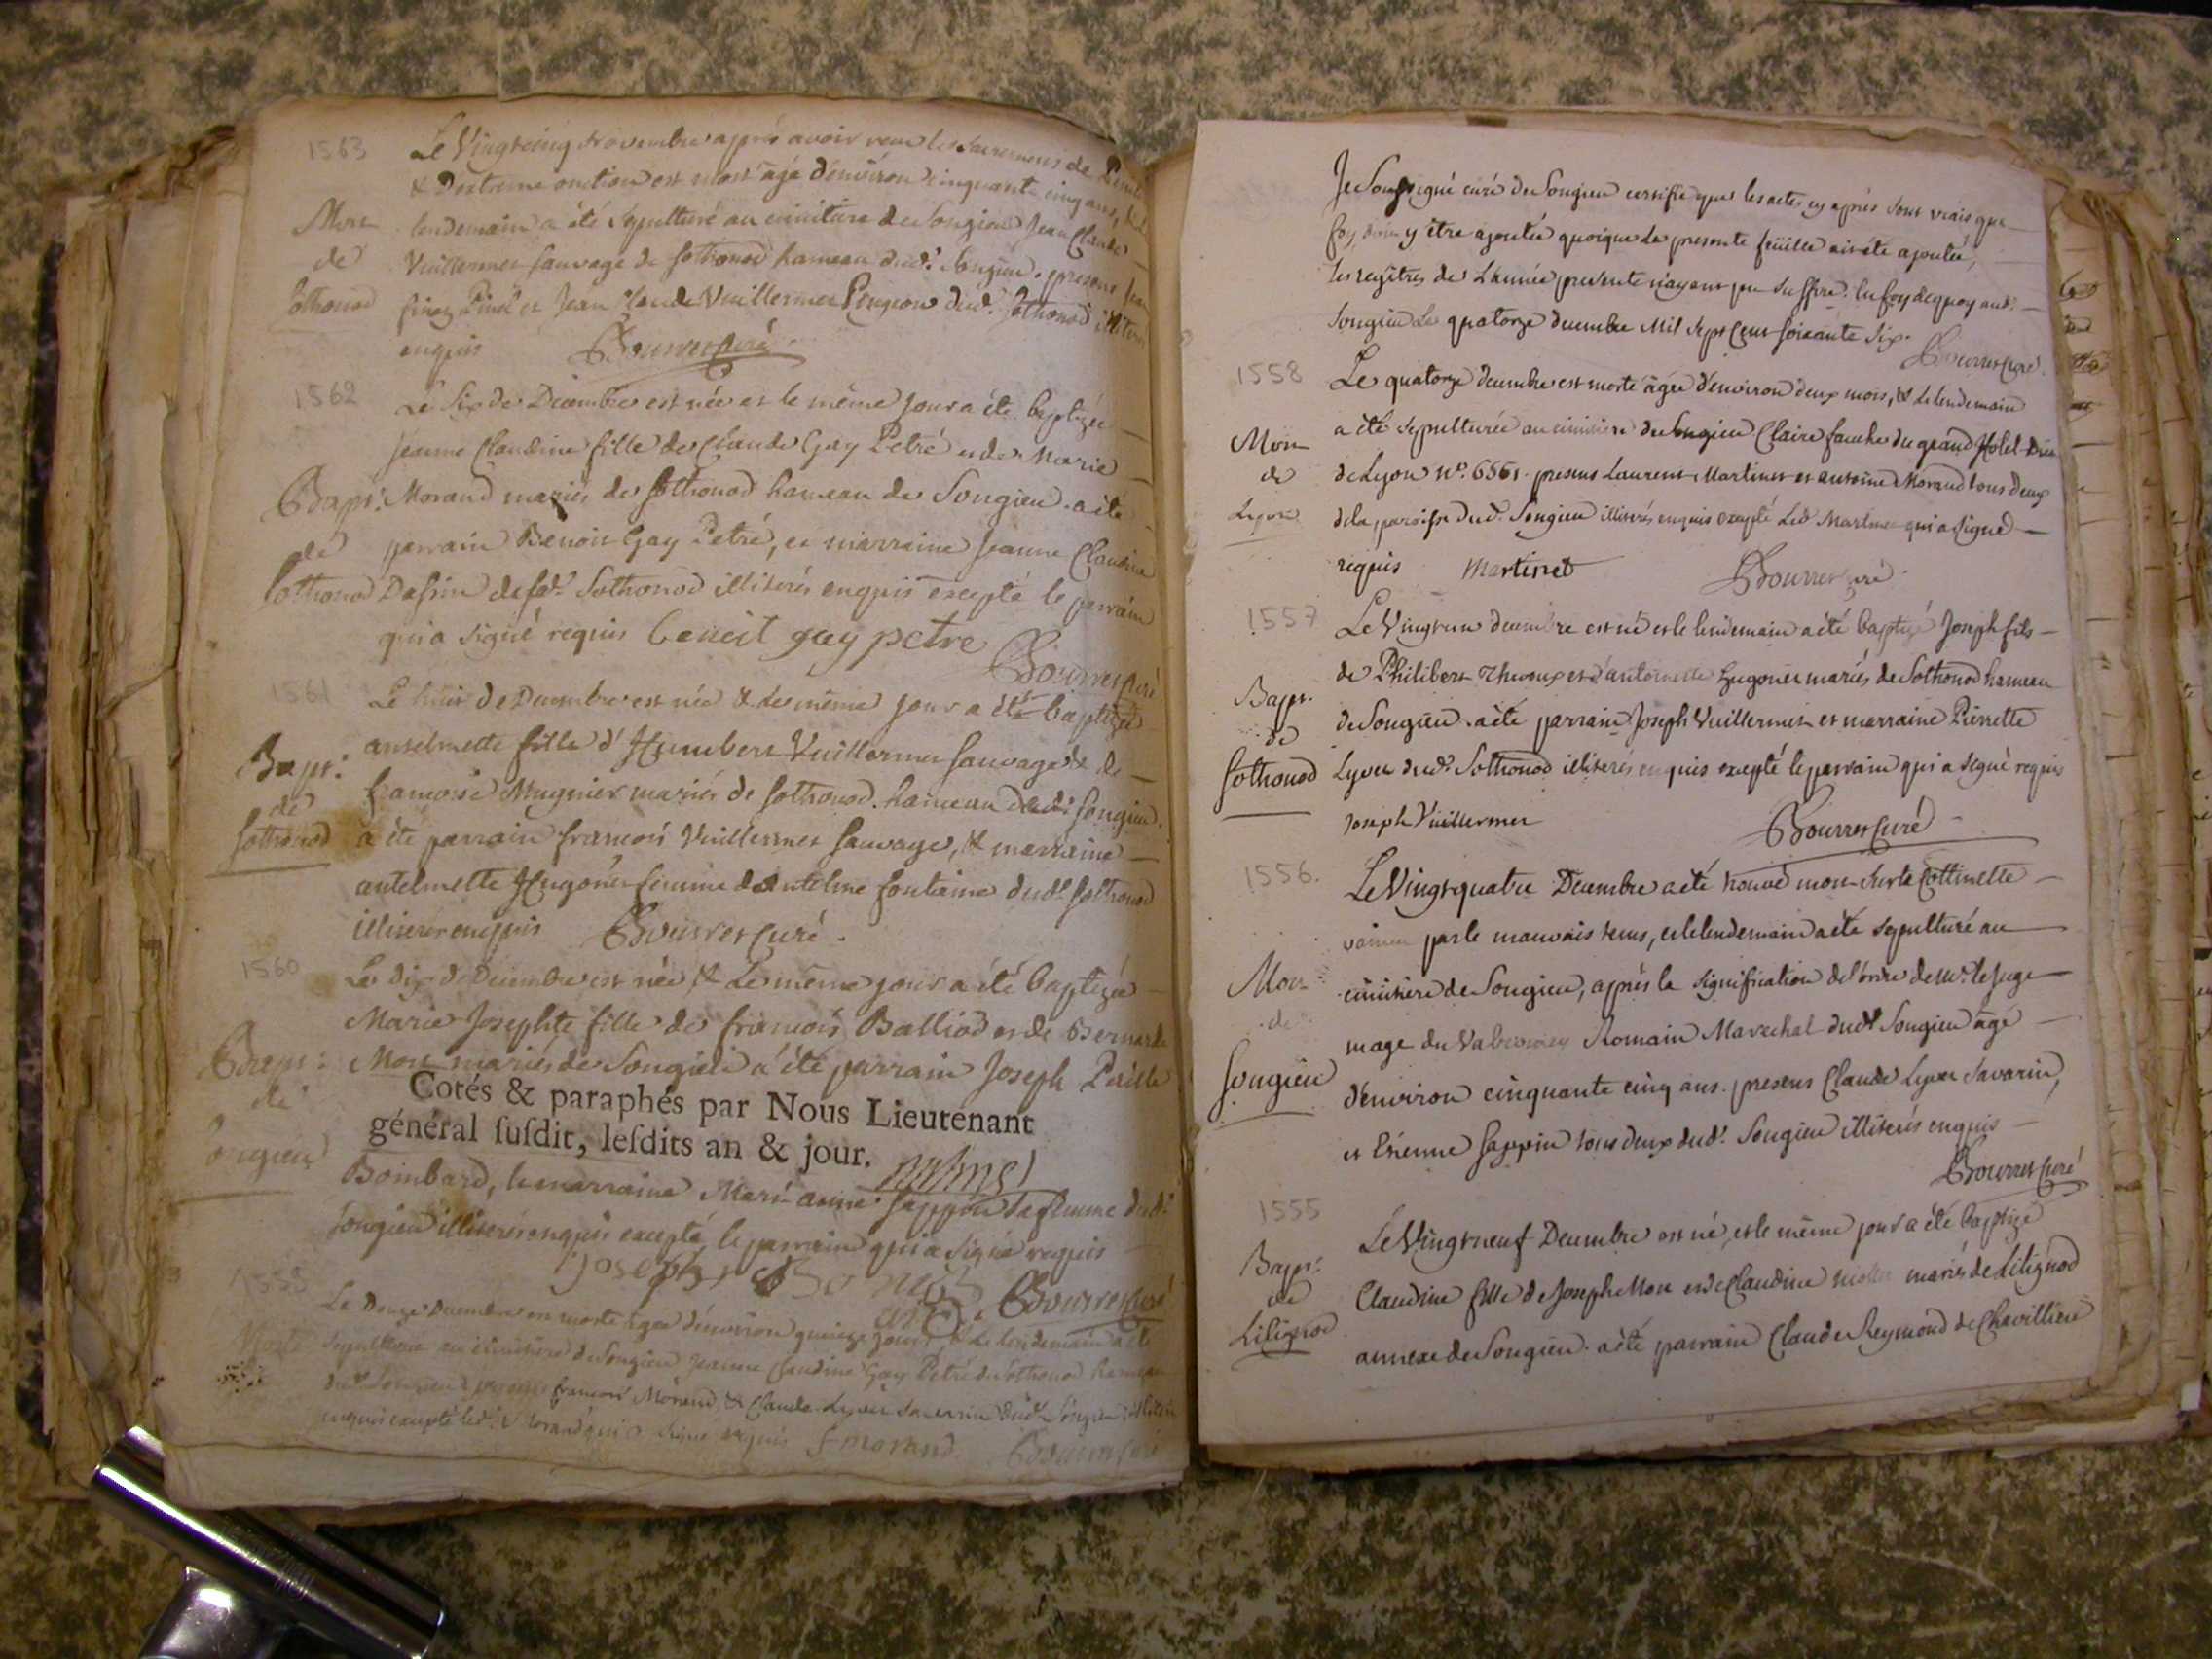 1563
Le Vingtcinq Novembre après avoir reçu les Sacremens de
& D'extreme onction est mort âgé d'environ cinquante cinq ans,
Mort
lendemain a été Sepulturé au cimitiere de Songieu Jean Claude
de
Vuillermet Sauvage de Sothonod hameau dud.t Songieu. presens
Sothonod
Jean Claude Vuillermet dud.t Sothonod
enquis Bourret Curé
1562
Le Six de Decembre est née et le même jour a été baptizée
Jeanne Claudine fille de Claude Gay Petré et de Marie
Bapt: Morand mariés de Sothonod hameau de Songieu. a été
de parrain Benoit Gay Petré, et marraine Jeanne Claudine
Sothonod Dassin dud.t Sothonod illiterés enquis excepté le parrain
qui a signé requis benoit gay petre
Bourret Curé
1561
Le huit de Decembre est née & le même jour a été baptizé
anselmette fille d'Humbert Vuillermet Sauvage & de
Bapt:
françoise Mugnier mariés de Sothonod. hameau dud.t Songieu.
de
Sothonod a été parrain françois Vuillermet Sauvage, & marraine
antelmette Hugonet femme d'antelme fontaine dud.t Sothonod
illiterés enquis Bourret Curé.
1560
Le dix de Decembre est née & Le même jour a été baptizée
Marie Josephte fille de françois Balliod et de Bernarde
Bapt: Mon mariés de Songieu a été parrain Joseph
Cotés & paraphés par Nous Lieutenant
de
général ſuſdit, leſdits an & jour.
Songieu
Bombard, la marraine Marie anne Sappin Sa femme dud.t
Songieu illiterés enquis excepté le parrain qui a signé requis
Joseph
Bourret Curé
Le Douze Decembre est morte agée d'environ quinze jours, & Le lendemain a été
Morte
sepulturée au cimitiere de Songieu Jeanne Claudine Gay Petré de Sothonod hameau
dud.t Songieu presens françois Morand, & Claude Lyvet Savarin dud.t Songieu
enquis excepté led.t Morand qui a Signé requis f morand. Bourret Curé
Je Soussigné curé de Songieu certifie que les actes cy après sont vrais que
foy doit y être ajoutée quoique la presente feüille ait été ajoutée,
les regîtres de L'année presente n'ayant pu suffire. En foy de quoy aud.t
Songieu Le quatorze decembre Mil Sept Cent soixante Six.
Bourret Curé.
1558
Le quatorze decembre est morte âgée d'environ deux mois, & le lendemain
a été sepulturée au cimitiere de Songieu Claire fauche du grand Hôtel-Dieu
Mort
de
de Lyon n.o 6561. presens Laurent Martinet et antoine Morand tous deux
Lyon
de la paroisse dud.t Songieu illiterés enquis excepté Led.t Martinet qui a signé
requis Martinet Bourret curé
1557
Le Vingt un decembre est né et le lendemain a été baptizé Joseph fils
de Philibert Thevoux et d'antoinette Hugonet mariés de Sothonod hameau
Bapt.
de Songieu. a été parrain Joseph Vuillermet et marraine Pierrette
de
Sothonod Lyvet dud.t Sothonod illiterés enquis excepté le parrain qui a signé requis
Joseph Vuillermet
Bourret Curé
1556.
Le Vingt quatre Decembre a été trouvé mort Sur la Cottinette
vaincu par le mauvais tems, et le lendemain a été sepulturé au
Mort
cimitiere de Songieu, après la signification de l'ordre de Mr. le Juge
de
mage du Valromey Romain Marechal dud.t Songieu âgé
Songieu
d'environ cinquante cinq ans. presens Claude Lyvet Savarin,
et Etienne Sappin tous deux dud.t Songieu illiterés enquis
Bourret Curé
1555
Le Vingt neuf Decembre est né et le même jour a été baptizé
Bapt:
Claudine fille de Joseph Mon et de Claudine mariés de Lilignod
de
Lilignod
annexe de Songieu. a été parrain Claude Reymond de Chavilliere